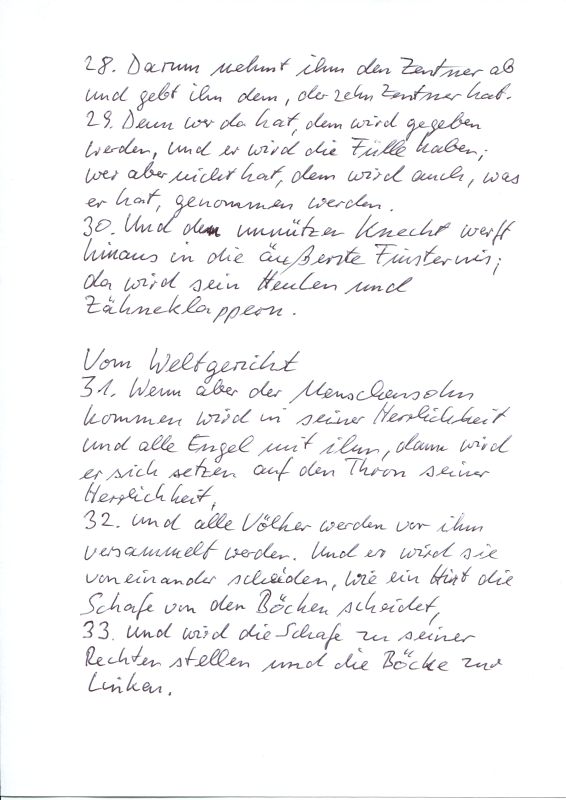 28. Darum nehmt ihm den Zentner ab
und gebt ihn dem, der zehn Zentner hat.
29. Denn wer da hat, dem wird gegeben
werden, und er wird die Fülle haben;
wer aber nicht hat, dem wird auch, was
er hat, genommen werden.
30. Und den unnützen Knecht werft
hinaus in die äußerste Finsternis;
da wird sein Heulen und
Zähneklappern.
Vom Weltgericht
31. Wenn aber der Menschensohn
kommen wird in seiner Herrlichkeit
und alle Engel mit ihm, dann wird
er sich setzen auf den Thron seiner
Herrlichkeit,
32. und alle Völker werden vor ihm
versammelt werden. Und er wird sie
voneinander scheiden, wie ein Hirt die
Schafe von den Böcken scheidet,
33. und wird die Schafe zu seiner
Rechten stellen und die Böcke zur
Linken.